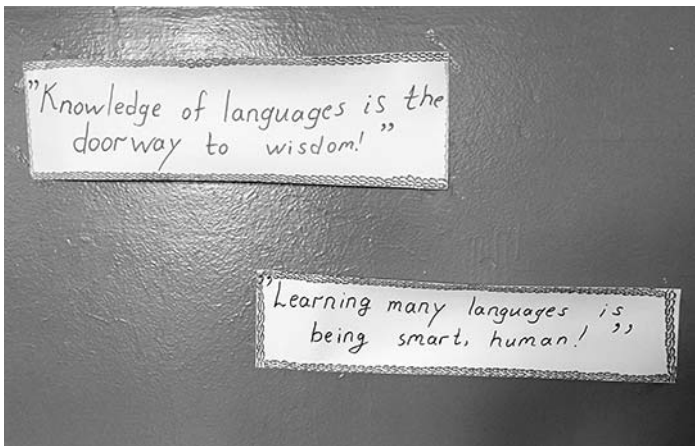 ”Knowledge of languages is the
doorway to wisdom!”
”Learning many languages is
being smart, human!”